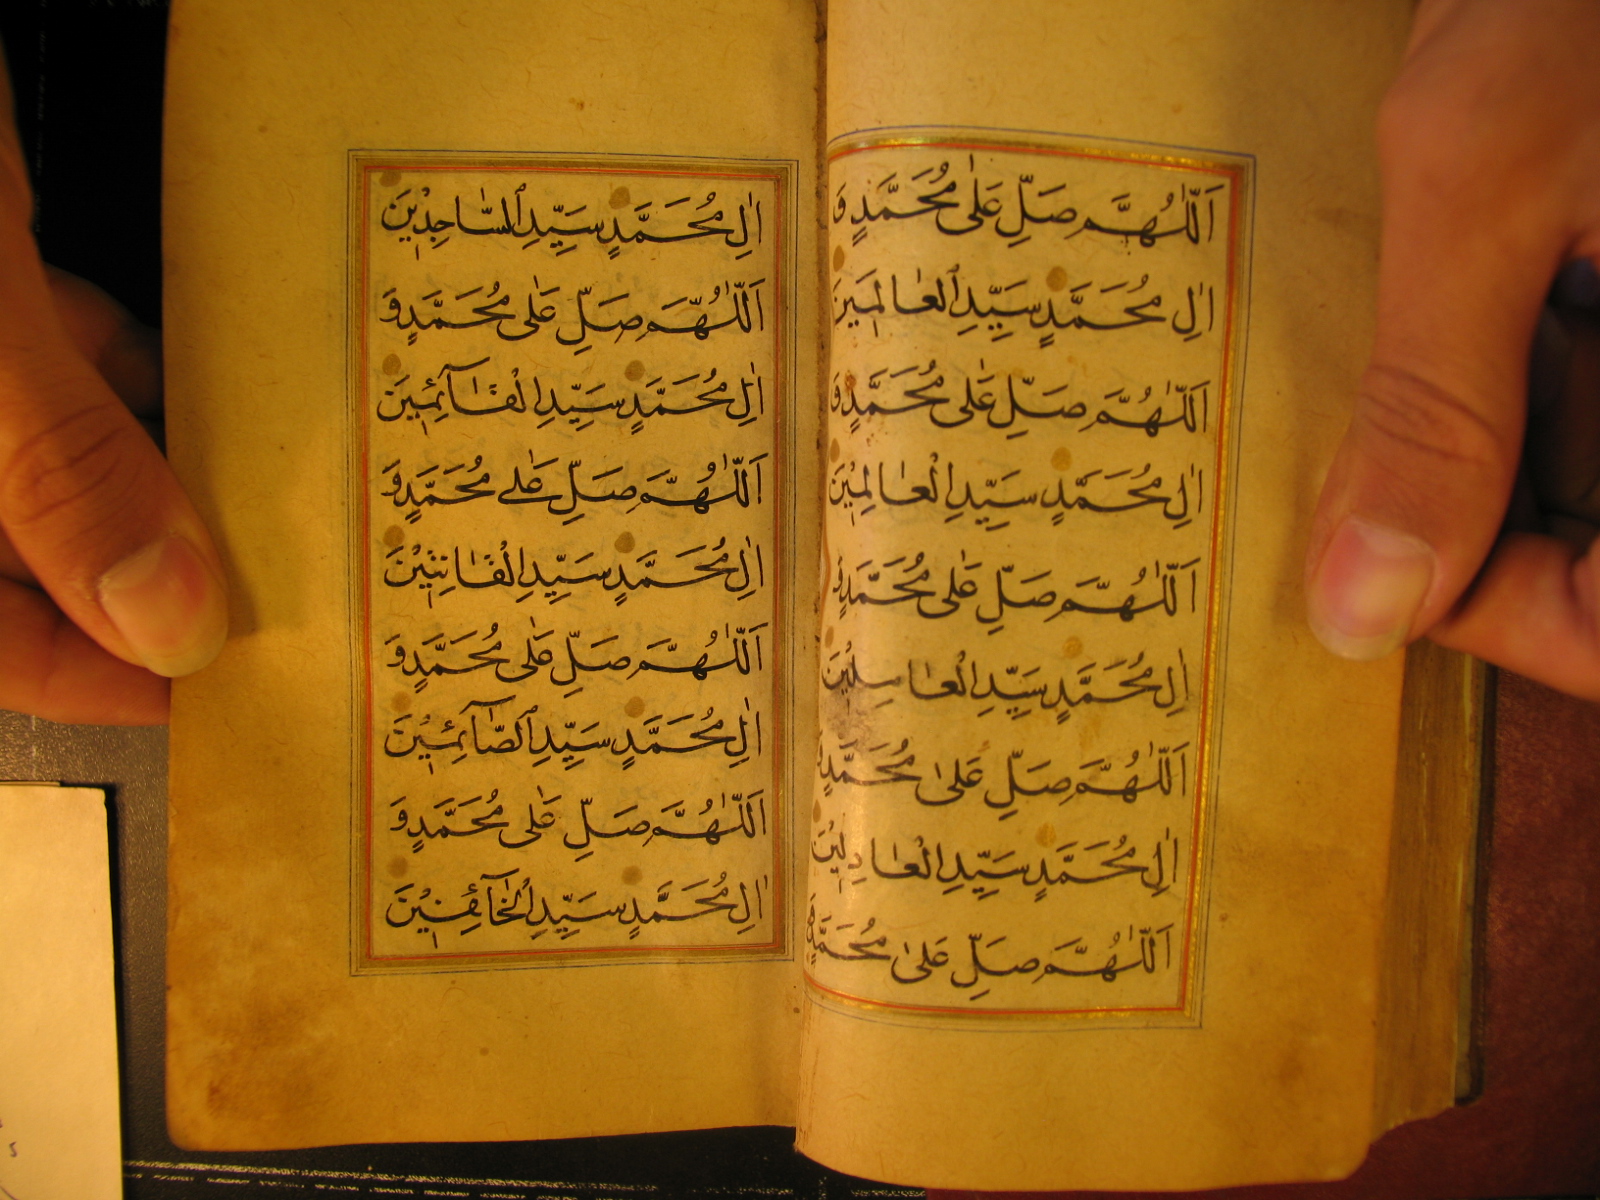 اَللّٰهُمَّ صَلِّ عَلٰى مُحَمَّدٍ وَ
اٰلِ مُحَمَّدٍ سَيِّدِ ٱلعَالَمِيَنَ
اَللّٰهُمَّ صَلِّ عَلٰى مُحَمَّدٍ وَ
اٰلِ مُحَمَّدٍ سَيِّدِ الْعَالِمِيْنَ
اَللّٰهُمَّ صَلِّ عَلٰى مُحَمَّدٍ وَ
اٰلِ مُحَمَّدٍ سَيِّدِ الْعَامِلِيْنَ
اَللّٰهُمَّ صَلِّ عَلىٰ مُحَمَّدٍ وَ
اٰلِ مُحَمَّدٍ سَيِّدِ الْعَادِلِيْنَ
اَللّٰهُمَّ صَلِّ عَلىٰ مُحَمَّدٍ وَ
اٰلِ مُحَمَّدٍ سَيِّدِ ٱلسَّاجِدِيْنَ
اَللّٰهُمَّ صَلِّ عَلٰى مُحَمَّدٍ وَ
اٰلِ مُحَمَّدٍ سَيِّدِ الْقَآئِمِيْنَ
اَللّٰهُمَّ صَلِّ عَلٰے مُحَمَّدٍ وَ
اٰلِ مُحَمَّدٍ سَيِّدِ الْقَانِتِيْنَ
اَللّٰهُمَّ صَلِّ عَلٰى مُحَمَّدٍ وَ
اٰلِ مُحَمَّدٍ سَيِّدِ ٱلصَّآئِمِيْنَ
اَللّٰهُمَّ صَلِّ عَلٰى مُحَمَّدٍ وَ
اٰلِ مُحَمَّدٍ سَيِّدِ الْخَآئِفِيْنَ